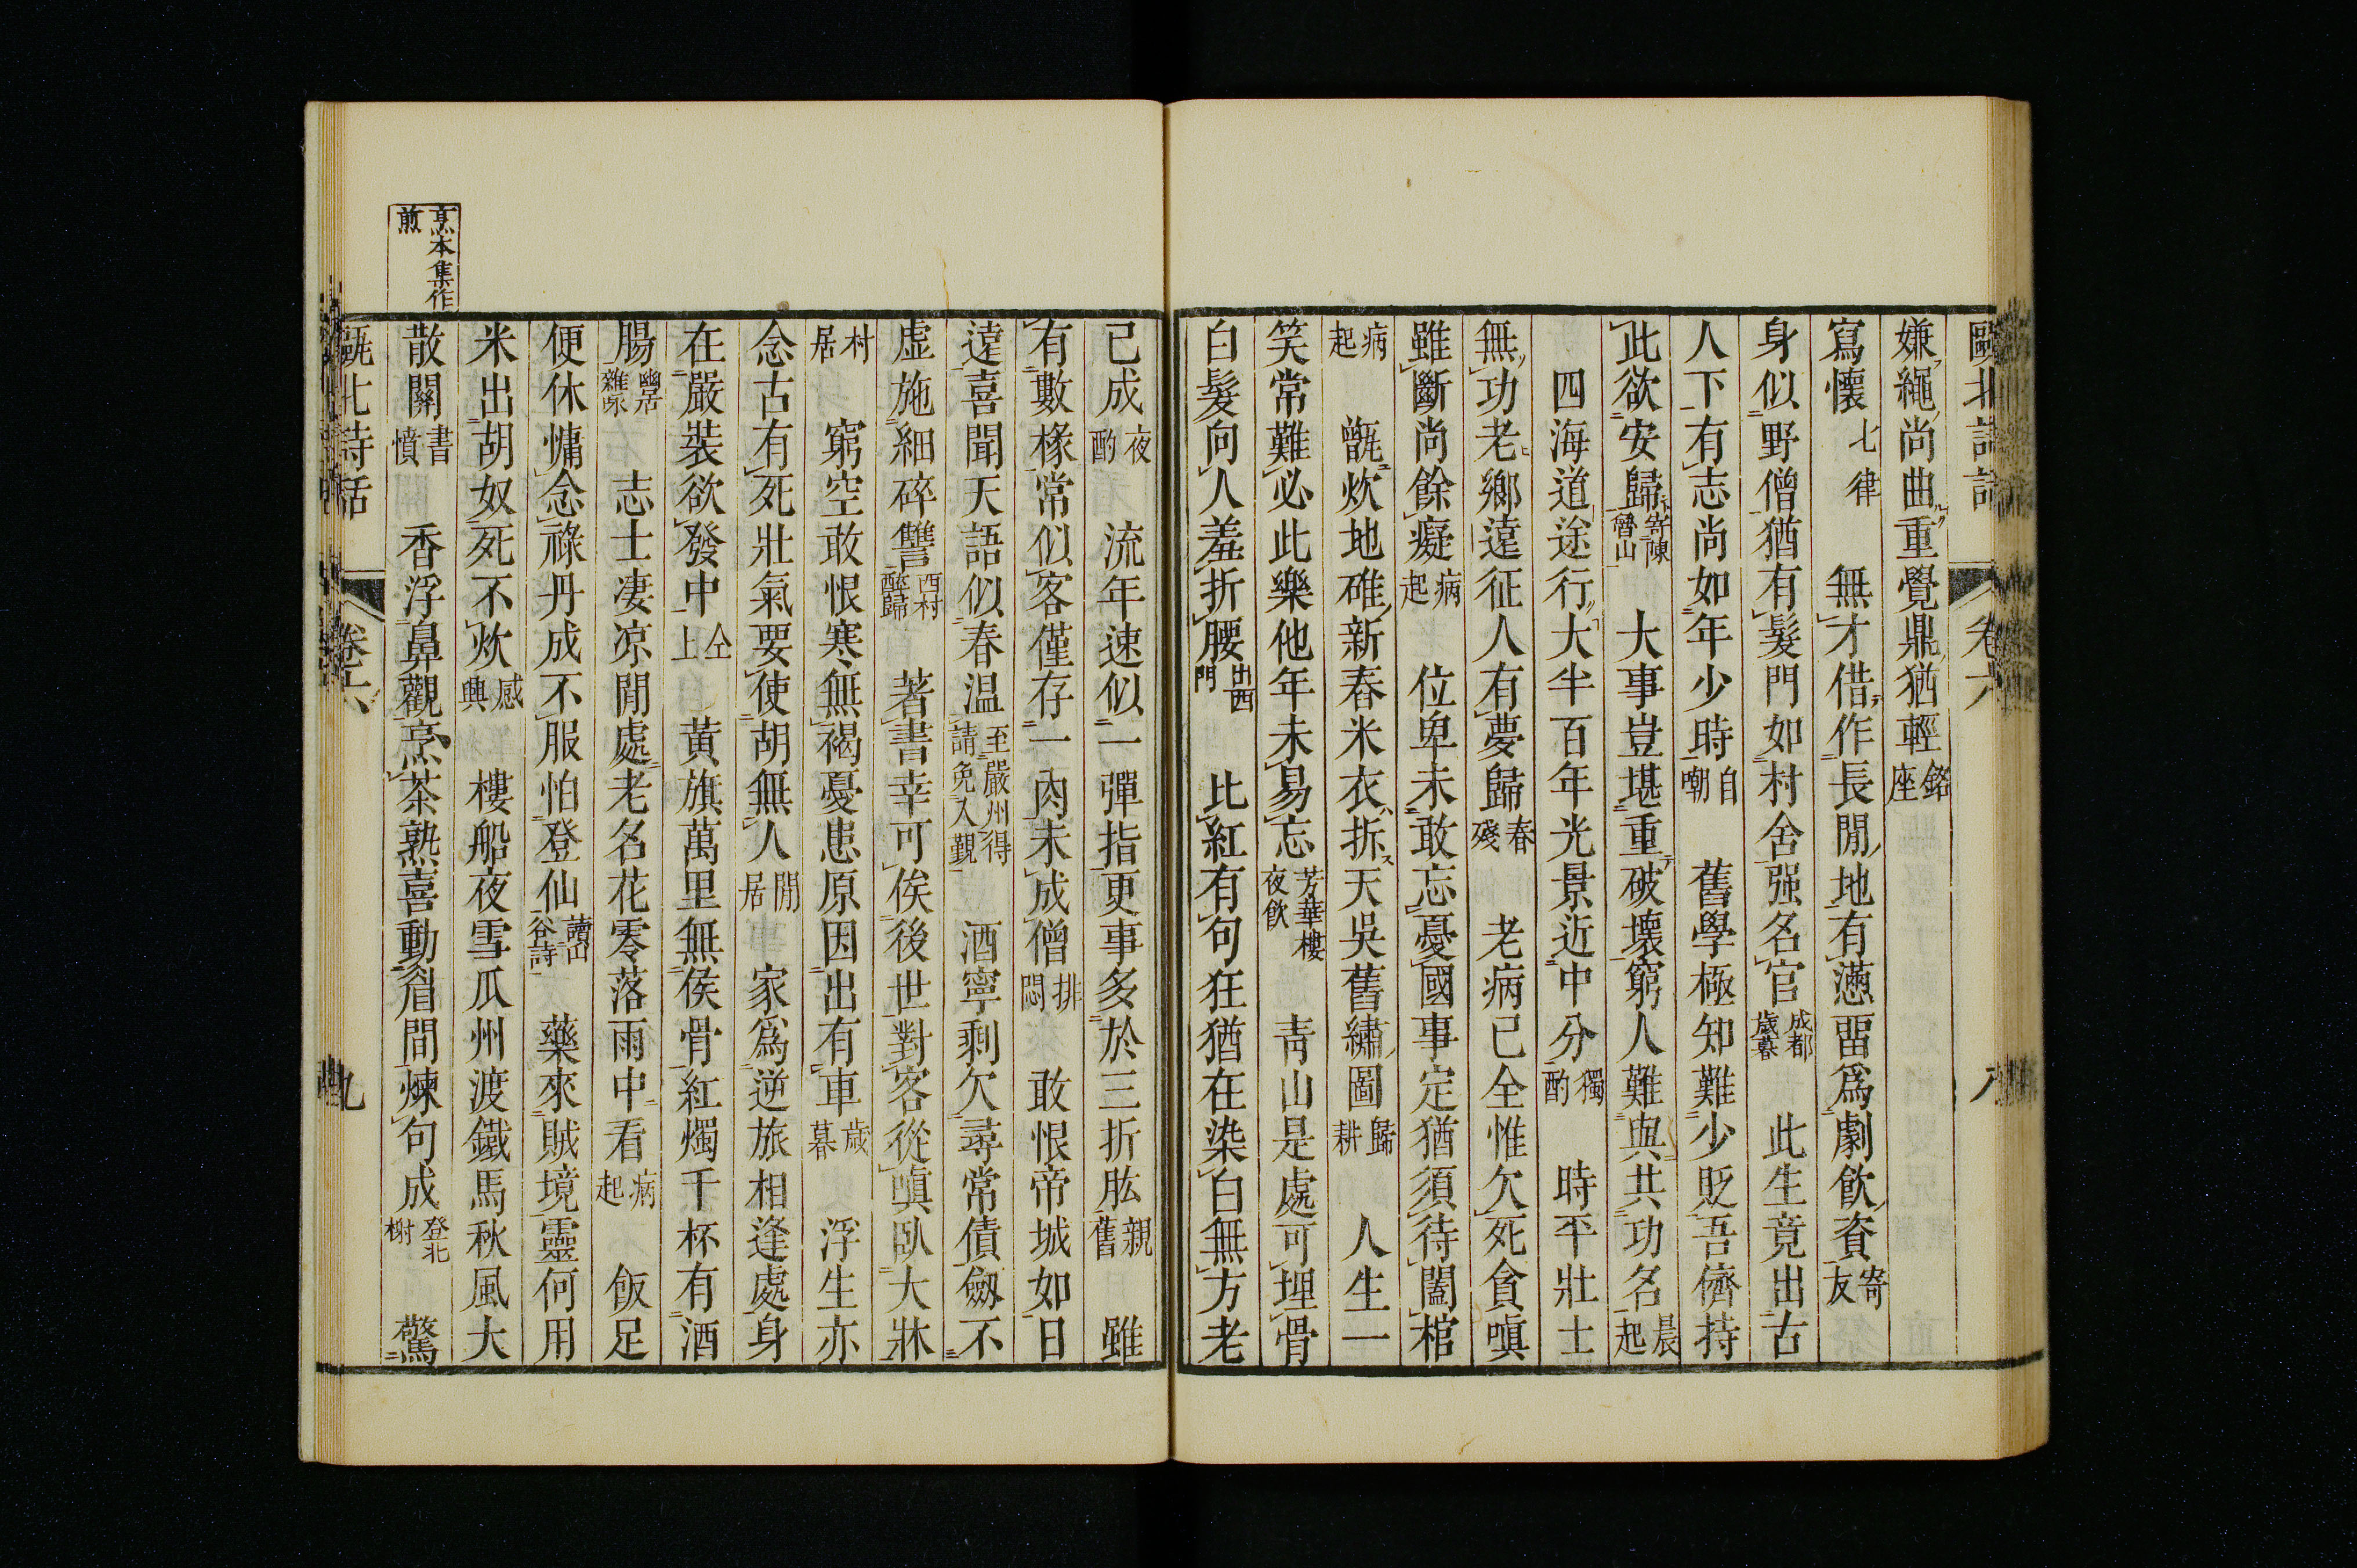 甌北詩話　卷六　八
嫌繩尚曲重覺鼎猶輕銘座
寫懷七律　無才借作長閒地有懣畱爲劇飮資寄友
身似野僧猶有髮門如村舍强名官成都歲暮　此生竟出古
人下有志尚如年少時自嘲　舊學極知難少貶吾儕持
此欲安歸寄陳魯山　大事豈堪重破壞窮人難與共功名晨起
四海道途行大半百年光景近中分獨酌　時平壯士
無功老鄉遠征人有夢歸春殘　老病已全惟欠死貪嗔
雖斷尚餘癡病起　位卑未敢忘憂國事定猶須待闔棺
病起　甑炊地碓新舂米衣拆天吳舊繡圖歸耕　人生一
笑常難必此樂他年未易忘芳華樓夜飮　靑山是處可埋骨
白髮向人羞折腰出西門　比紅有句狂猶在染白無方老
已成夜酌　流年速似一彈指更事多於三折肱親舊　雖
有數椽常似客僅存一肉未成僧排悶　敢恨帝城如日
遠喜聞天語似春温至嚴州得請免入覲　酒寧剩欠尋常債劒不
虛施細碎讐西村醉歸　著書幸可俟後世對客從嗔臥大牀
村居　窮空敢恨寒無褐憂患原因出有車歲暮　浮生亦
念古有死壯氣要使胡無人閒居　家爲逆旅相逢處身
在嚴裝欲發中仝上　黃旗萬里無侯骨紅燭千杯有酒
腸幽居雜咏　志士凄凉閒處老名花零落雨中看病起　飯足
便休慵念祿丹成不服怕登仙讀山谷詩　藥來賊境靈何用
米出胡奴死不炊感興　樓船夜雪瓜州渡鐵馬秋風大
散關書憤　香浮鼻觀烹茶熟喜動眉間煉句成登北榭　驚
甌北詩話　卷六　九
烹本集作
煎